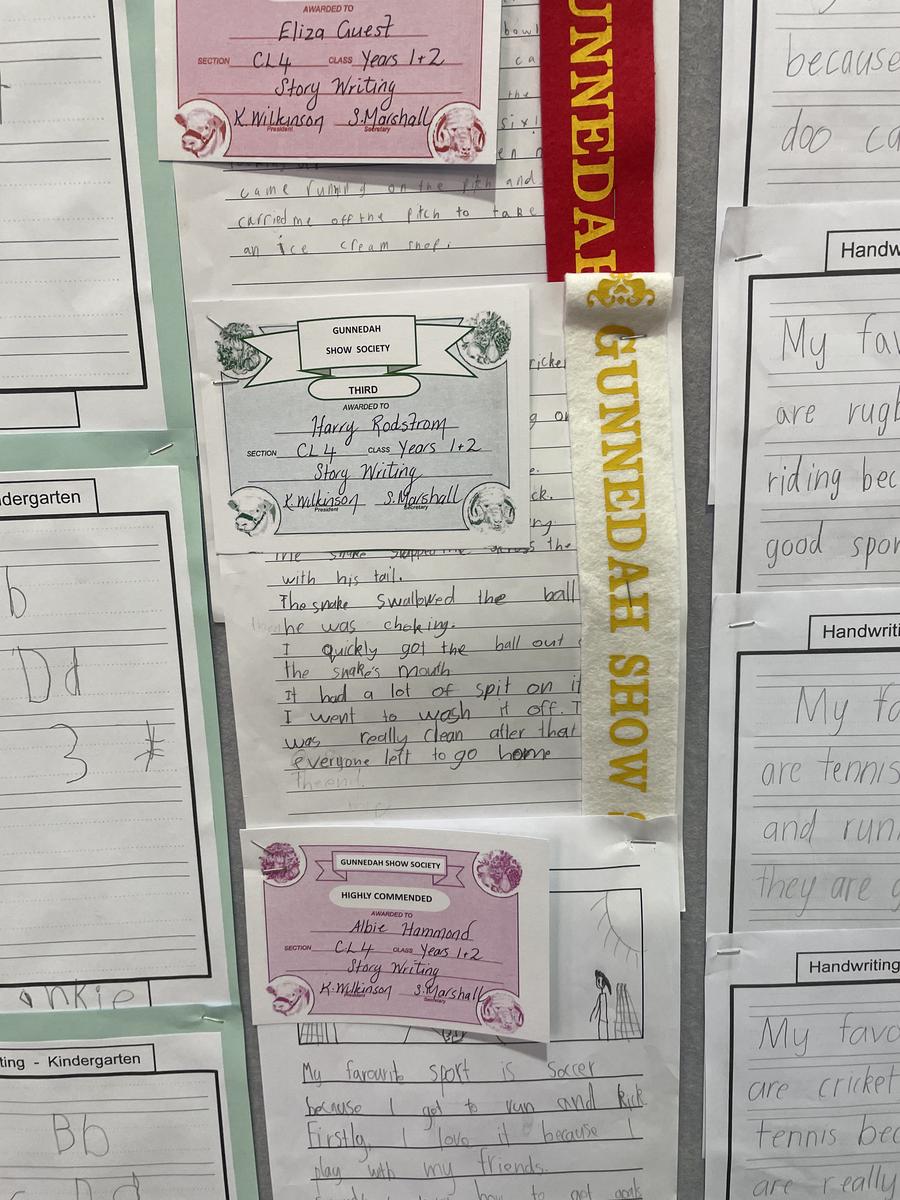 AWARDED TO
Eliza Guest
SECTION CL4 CLASS Years 1+2
Story Writing
K.Wilkinson S.Marshall
President Secretary
came running on the pitch and
carried me off the pitch to take
an ice cream shop.
GUNNEDAH
GUNNEDAH
SHOW SOCIETY
THIRD
AWARDED TO
Harry Rodstrom
SECTION CL4 CLASS Years 1+2
Story Writing
K.Wilkinson S.Marshall
President Secretary
GUNNEDAH SHOW
the snake slapped me across the
with his tail.
The snake swallowed the ball
then he was choking.
I quickly got the ball out
the snake's mouth
It had a lot of spit on it
I went to wash it off. I
was really clean after that
everyone left to go home
The end.
GUNNEDAH SHOW SOCIETY
HIGHLY COMMENDED
AWARDED TO
Albie Hammond
SECTION CL4 CLASS Years 1+2
Story Writing
K.Wilkinson S.Marshall
President Secretary
My favourite sport is soccer
because I get to run and kick
Firstly, I love it because I
play with my friends.
how to get goals
dergarten
b
Dd
3
nkie
ting - Kindergarten
Bb
because
doo ca
Handw
My fav
are rugb
riding bec
good spor
Handwriti
My fa
are tennis
and run
they are g
Handwriting
My favo
are cricket
tennis bec
are really